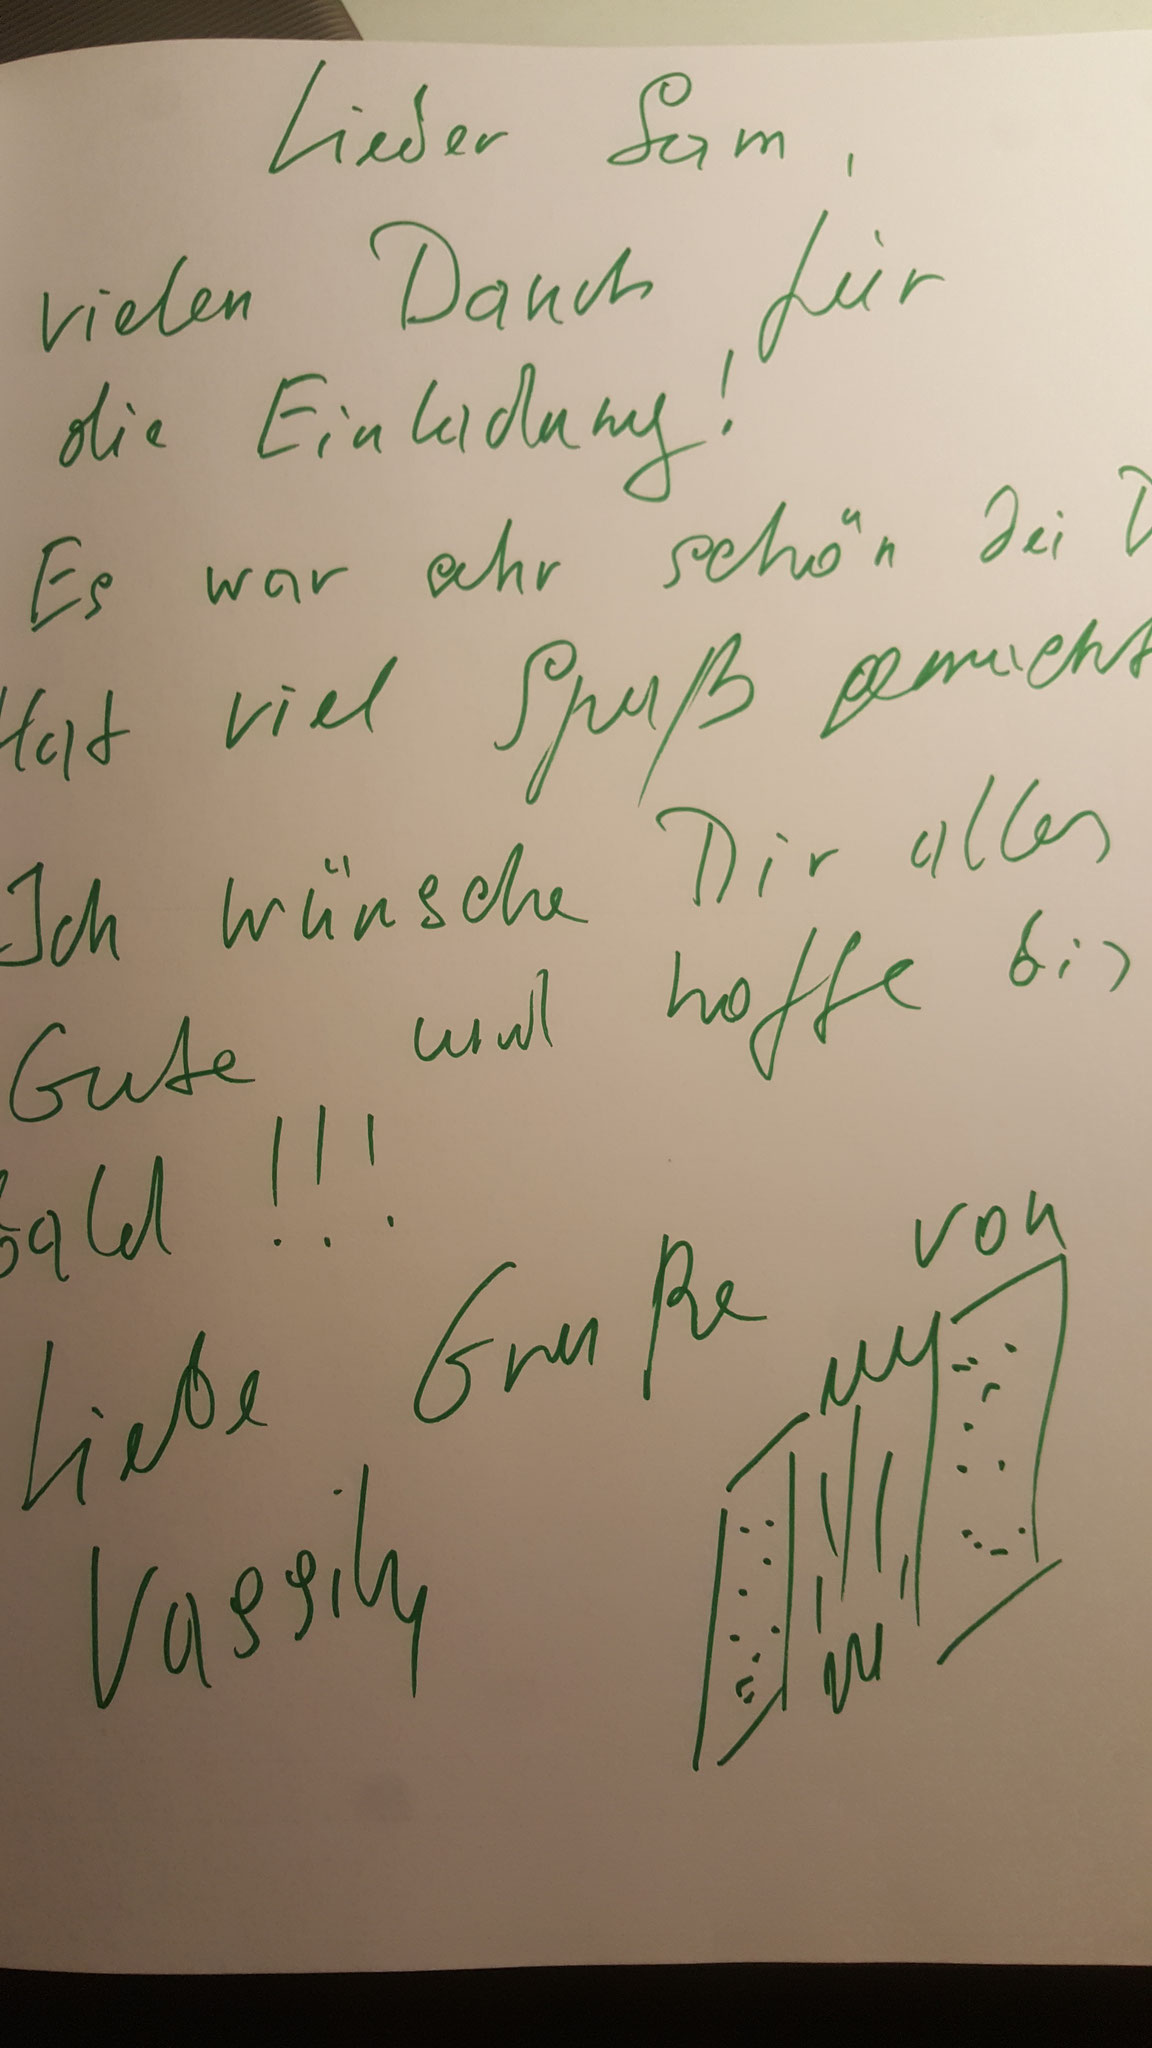 Lieber Sam,
vielen Danck für
die Einladung!
Es war sehr schön bei D
Hat viel Spaß gemacht
Ich wünsche Dir alles
Gute und hoffe bis
bald !!!
Liebe Gruße von
Vassily